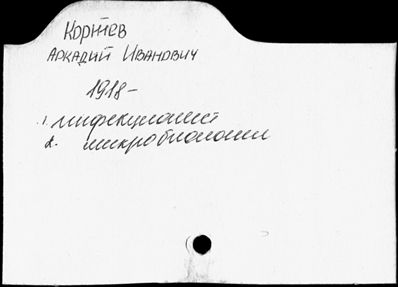 Кортев
Аркадий Иванович
1918-
1. инфекционист
2. микробиологии